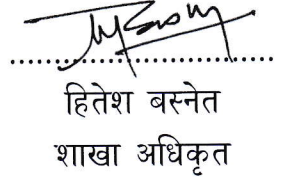 हितेश बस्नेत
शाखा अधिकृत